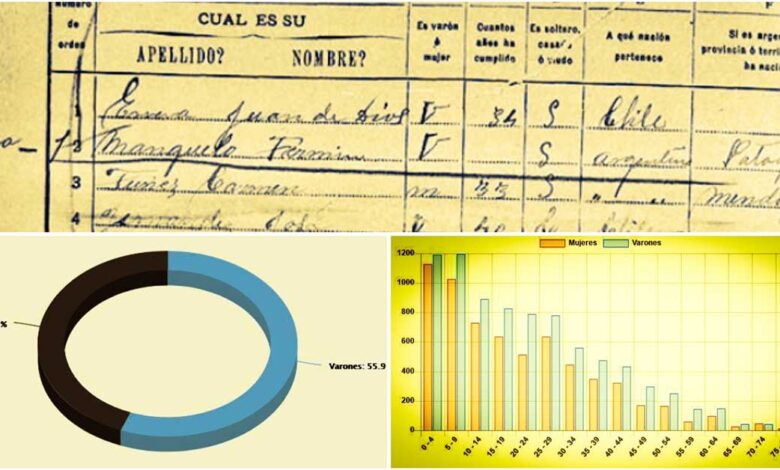 Número
de
orden
CUAL ES SU
APELLIDO?
NOMBRE?
Es varón
ó
mujer
Cuantos
años ha
cumplido
Es soltero,
casado
ó viudo
A qué nación
pertenece
Si es arge
provincia ó terri
ha naci
1 Juan de Dios V 34 S Chile
2 Manquelo Fermin V S Argentina Pata
3 Tuñez Carmen m 33 S " " mendo
4
%
Varones: 55.9
Mujeres Varones
1200
1000
800
600
400
200
0
0 - 4
5 - 9
10 - 14
15 - 19
20 - 24
25 - 29
30 - 34
35 - 39
40 - 44
45 - 49
50 - 54
55 - 59
60 - 64
65 - 69
70 - 74
75